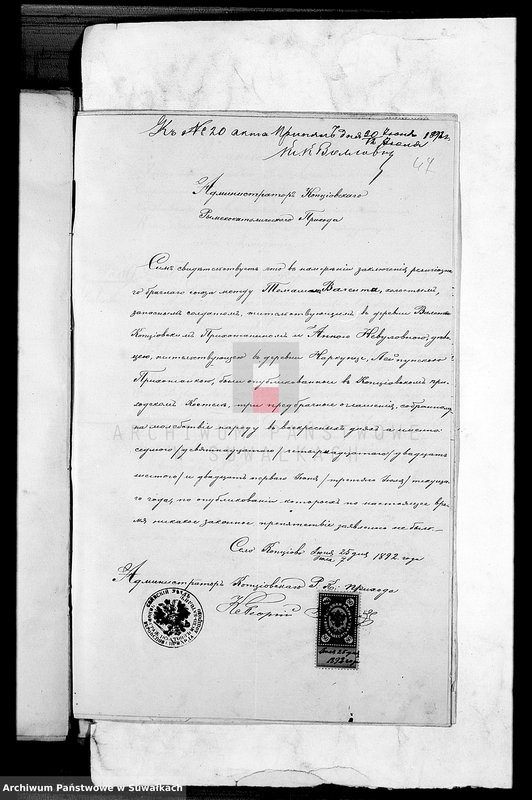 Къ № 20 акта Приплъ дня 30 Іюня 1892 г.
12 Іюля
47
Администраторъ Копціовскаго
Римскокатолическаго Прихода
Симъ свидѣтельствуетъ что въ намѣреніи заключенія религіозна-
го брачнаго союза между Томашемъ Валента, холостымъ,
запаснымъ солдатомъ, жительствующимъ въ деревни
Копціовскимъ Прихожаниномъ и Анною, дѣви-
цею, жительствующею въ деревни, Лейпунскою
Прихожанкою, были опубликованы въ Копціовскомъ при-
ходскомъ Костелѣ, три предбрачные оглашенія, собранному
на молебствіе народу въ воскресныхъ дняхъ а именно
седьмого /девятнадцатаго/ четырнадцатаго /двадцать
шестого/ и двадцать перваго Іюня /третьяго Іюля/ текущаго
года, по опубликованіи которыхъ по настоящее вре-
мя никакое законное препятствіе заявлено не было.—
Село Копціово Іюня 25 дня 1892 года
Іюля 7
Администраторъ Копціовскаго Р. К. прихода
Іюня 25 дня
1892 год
ARCHIWUM PAŃSTWOWE
SUWAŁKACH
Archiwum Państwowe w Suwałkach